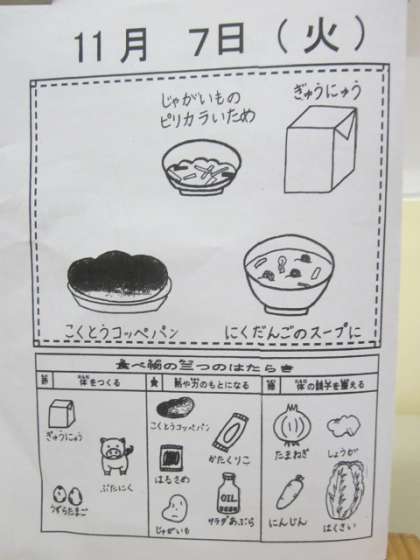 11月 7日 (火)
じゃがいもの
ピリカラいため
ぎゅうにゅう
こくとうコッペパン
にくだんごのスープに
食べ物の三つのはたらき
体をつくる
熱や力のもとになる
体の調子を整える
ぎゅうにゅう
ぶたにく
うずらたまご
こくとうコッペパン
かたくりこ
はるさめ
OIL
じゃがいも
サラダあぶら
たまねぎ
しょうが
にんじん
はくさい